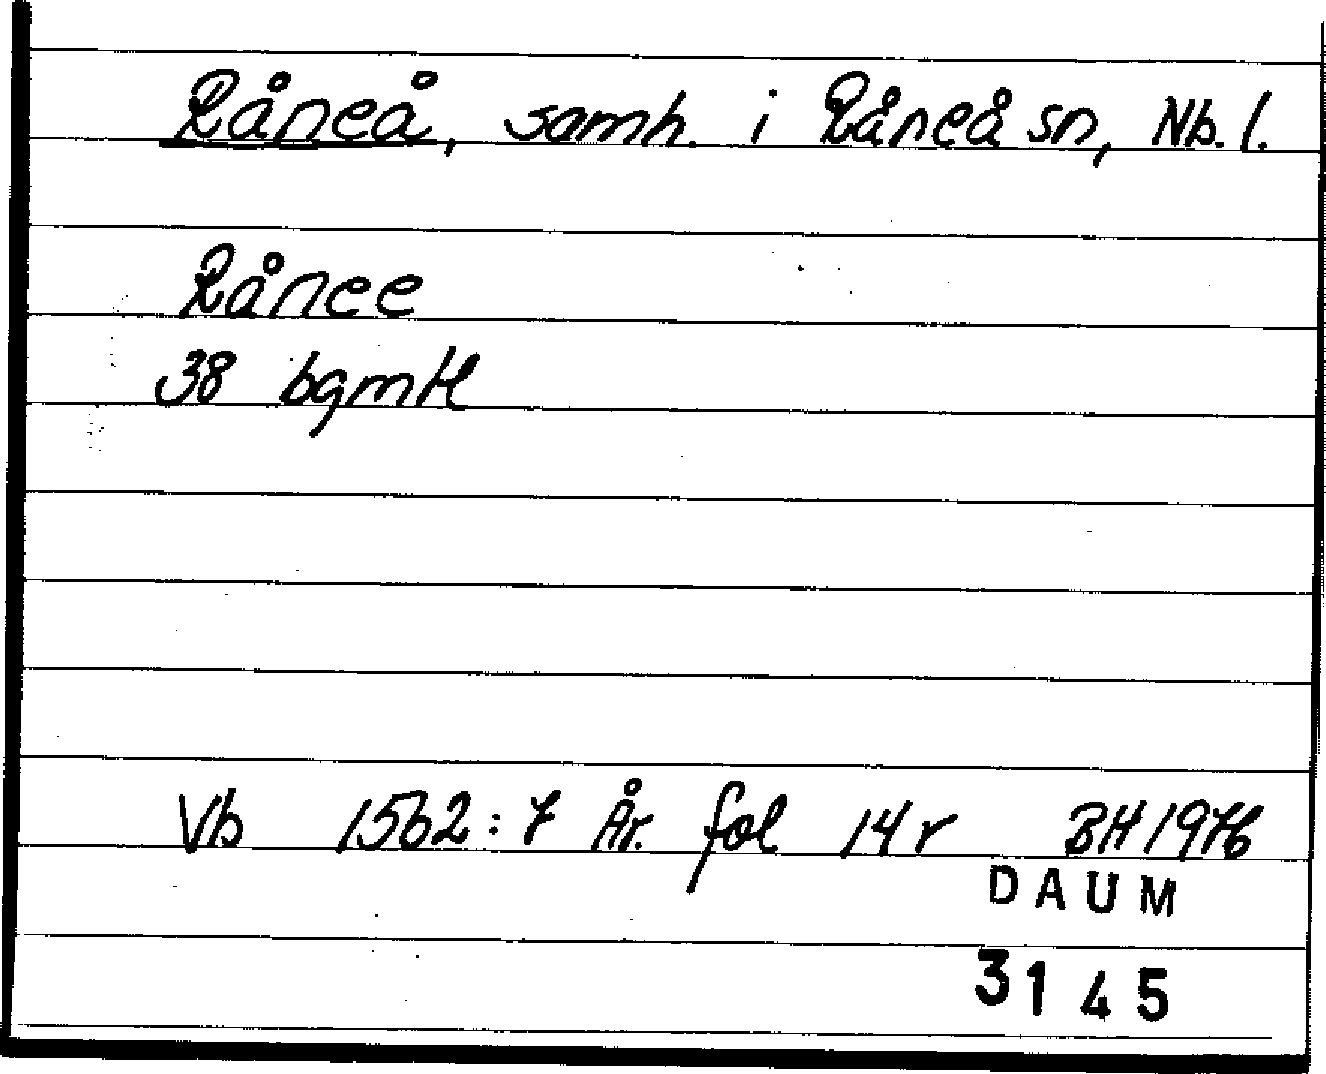 Råneå, samh. i Råneå sn, Nb. l.
Rånee
38 bgmtl
Vb 1562:7 År. fol 14 r BH 1976
DAUM
3145